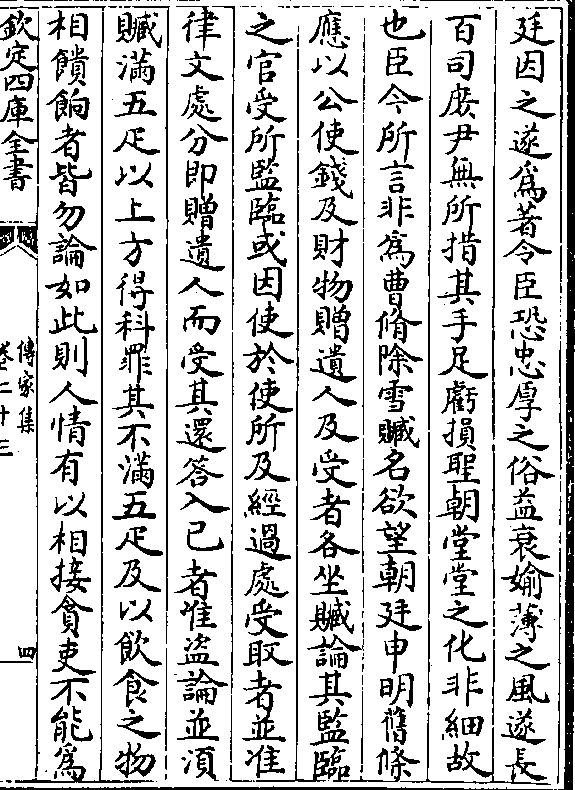 廷因之遂為著令臣恐忠厚之俗益衰媮薄之風遂長
百司庻尹無所措其手足虧損聖朝堂堂之化非細故
也臣今所言非為曹脩除雪贓名欲望朝廷申明舊條
應以公使錢及財物贈遺人及受者各坐贓論其監臨
之官受所監臨或因使於使所及經過處受取者並准
律文處分即贈遺人而受其還答入已者准盗論並湏
贓滿五疋以上方得科罪其不滿五疋及以飲食之物
相饋餉者皆勿論如此則人情有以相接貪吏不能為
欽定四庫全書
傳家集
卷二十三
四